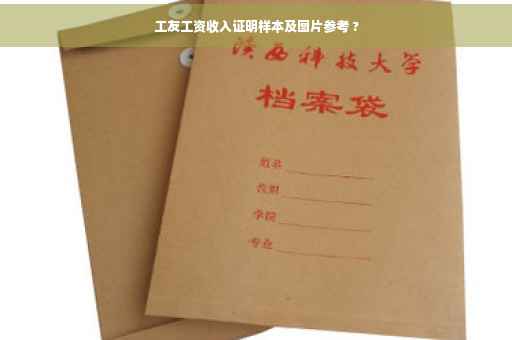 工友工资收入证明样本及图片参考？
陕西科技大学
档案袋
姓名
学院
专业